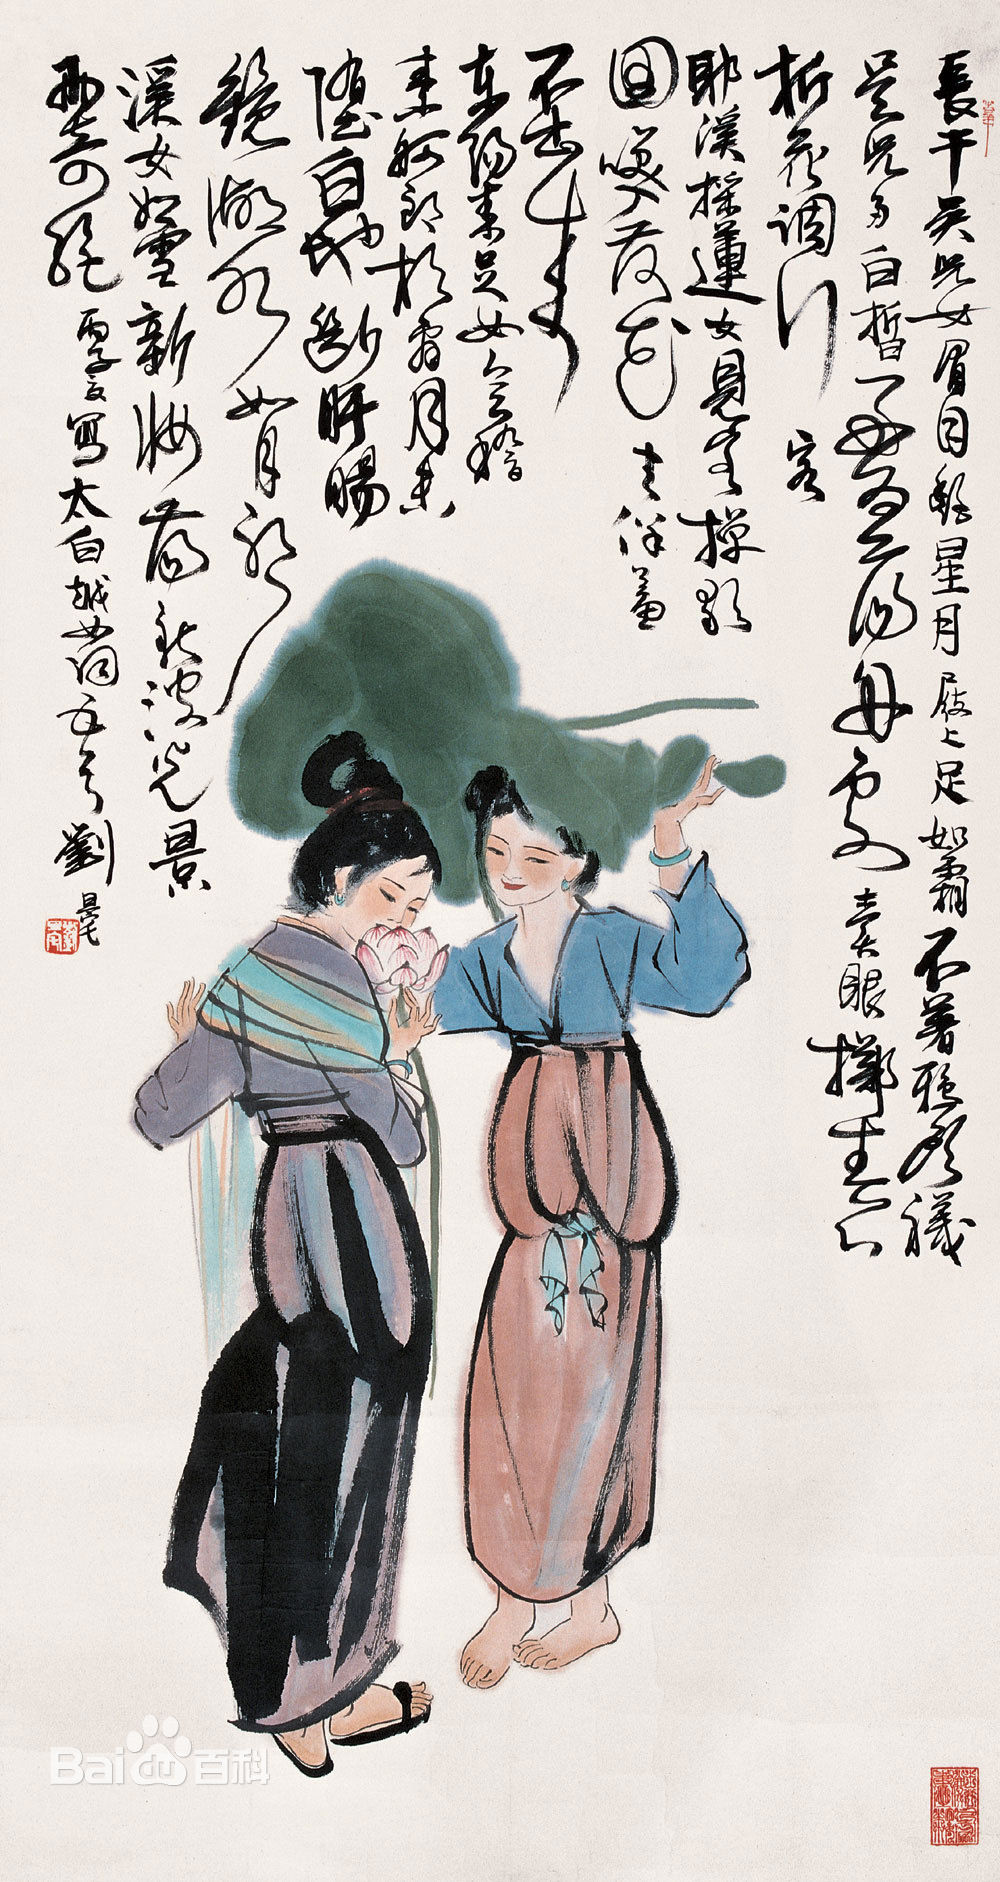 長干吴兒女眉目艷星月屐上足如霜不著鴉頭襪
吴兒多白皙好為蕩舟劇賣眼擲春心
折花調行客
耶溪採蓮女見客棹歌
回笑入荷花去佯羞
不出來
東陽素足女會稽
素舸郎相看月未
墮白地斷肝腸
鏡湖水如月耶
溪女如雪新妝蕩新波光景
兩奇絕 寫太白越女詞五首 劉旦宅
Bai百科